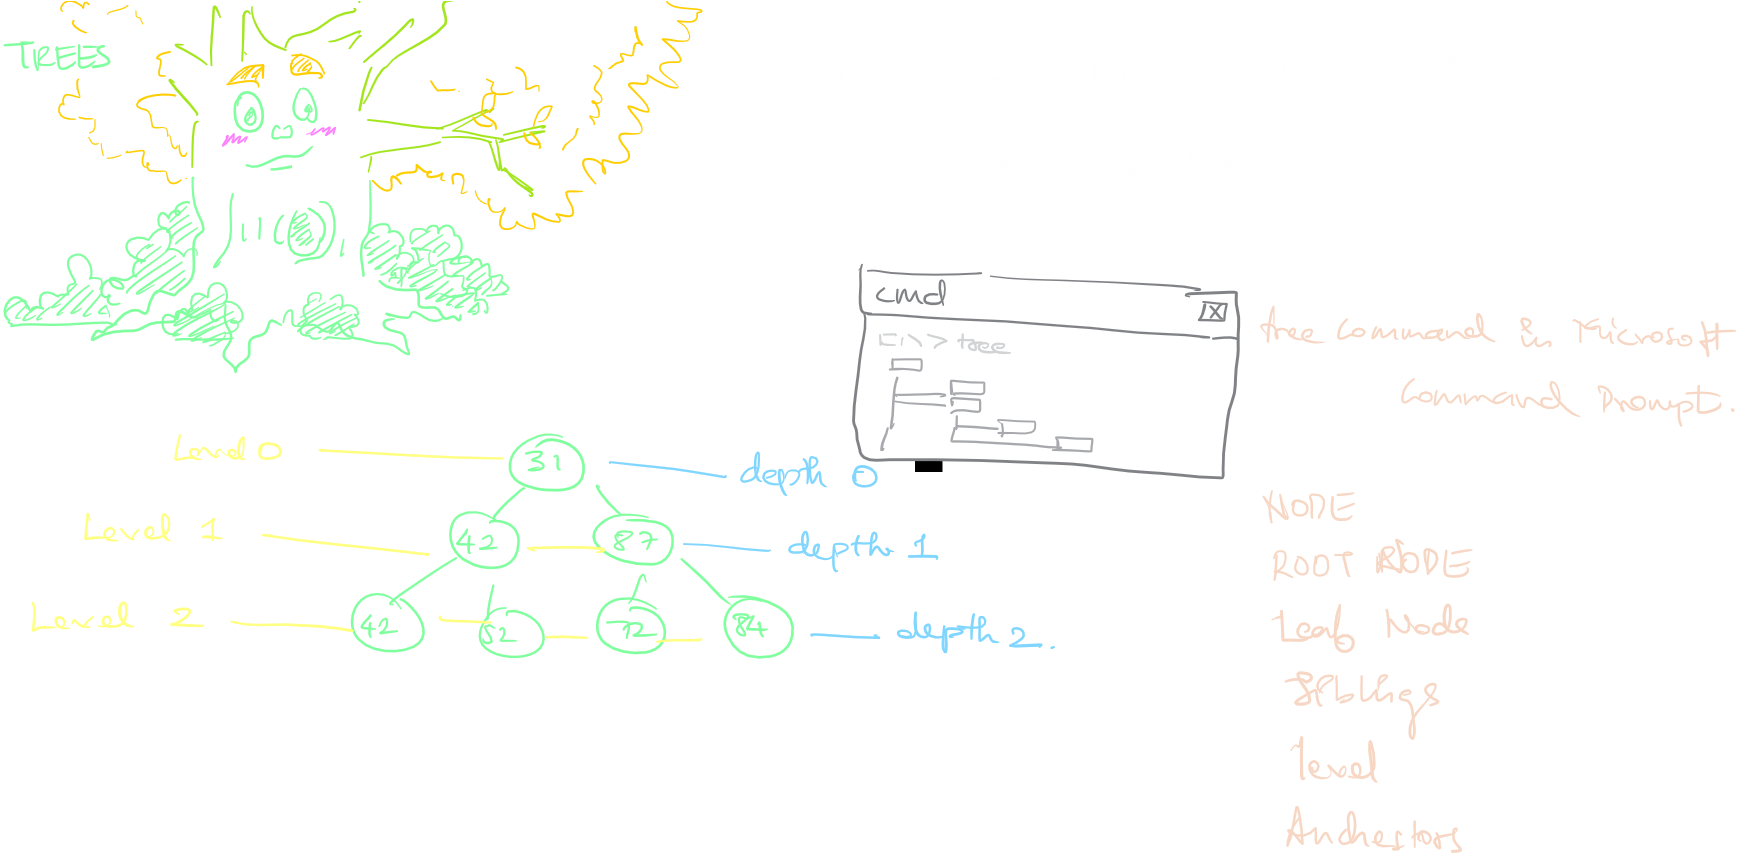 TREES
cmd
X
C:\> tree
tree command in Microsoft
Command Prompt.
Level 0
31
depth 0
Level 1
42
87
depth 1
Level 2
42
52
72
84
depth 2.
NODE
ROOT NODE
Leaf Node
Siblings
Level
Anchestors